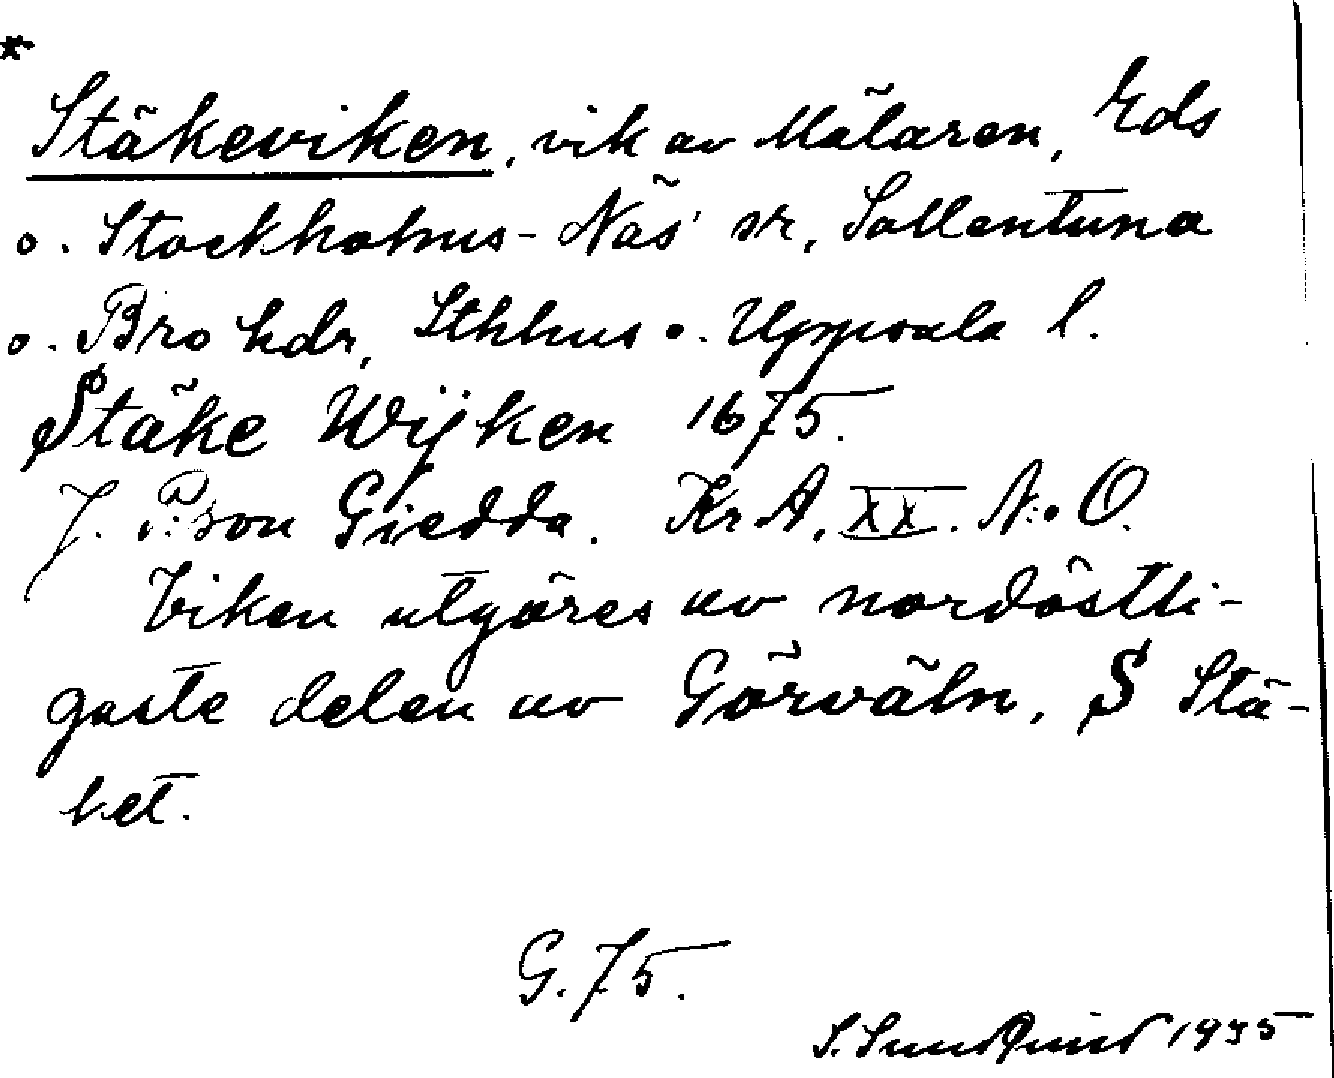 *
Stäkeviken, vik av Mälaren, Eds
o. Stockholms-Näs' sr, Sollentuna
o. Bro hdr, Sthlms o. Uppsala l.
Stäke Wijken 1675.
J. P:son Giedda. Kr A. XX. N:o O.
Viken utgöres av nordöstli-
gaste delen av Görväln, S Stä-
ket.
G. 75.
S. Sundquist 1935